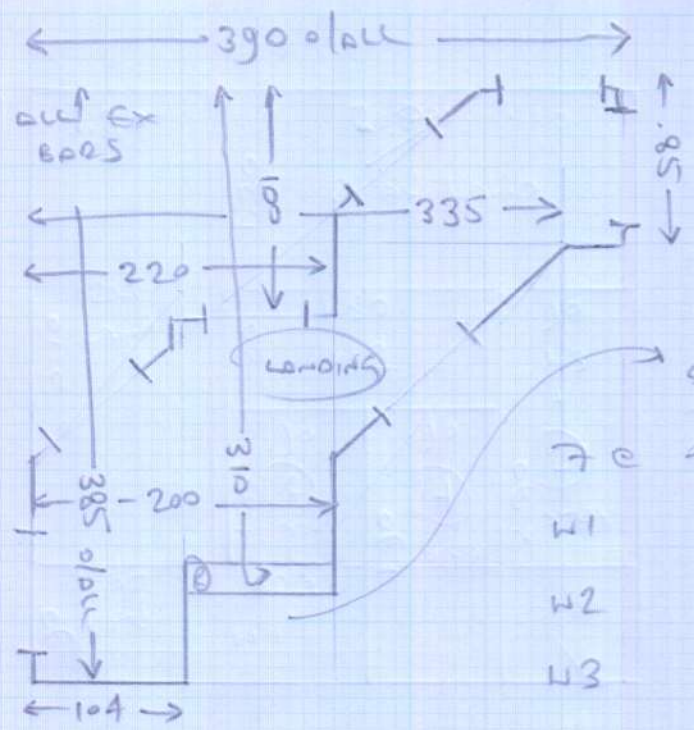 390 o/ALL
ALL EX
BARS
.85
335
220
LANDING
310
200
385 o/ALL
7 e
W1
W2
W3
104